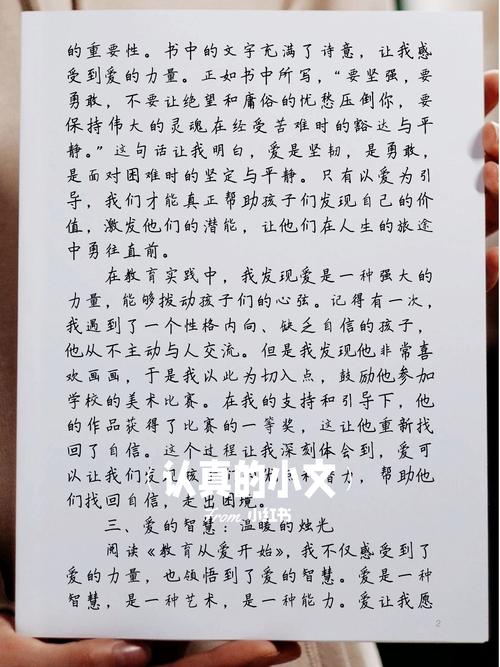 的重要性。书中的文字充满了诗意，让我感
受到爱的力量。正如书中所写，“要坚强，要
勇敢，不要让绝望和庸俗的忧愁压倒你，要
保持伟大的灵魂在经受苦难时的豁达与平
静。”这句话让我明白，爱是坚韧，是勇敢，
是面对困难时的坚定与平静。只有以爱为引
导，我们才能真正帮助孩子们发现自己的价
值，激发他们的潜能，让他们在人生的旅途
中勇往直前。
在教育实践中，我发现爱是一种强大的
力量，能够拨动孩子们的心弦。记得有一次，
我遇到了一个性格内向、缺乏自信的孩子，
他从不主动与人交流。但是我发现他非常喜
欢画画，于是我以此为切入点，鼓励他参加
学校的美术比赛。在我的支持和引导下，他
的作品获得了比赛的一等奖，这让他重新找
回了自信。这个过程让我深刻体会到，爱可
以让我们力，帮助他
们找回自信，走出困境。
（认真的小文）
from 小红书
三、爱的智慧：温暖的烛光
阅读《教育从爱开始》，我不仅感受到了
爱的力量，也领悟到了爱的智慧。爱是一种
智慧，是一种艺术，是一种能力。爱让我愿
2